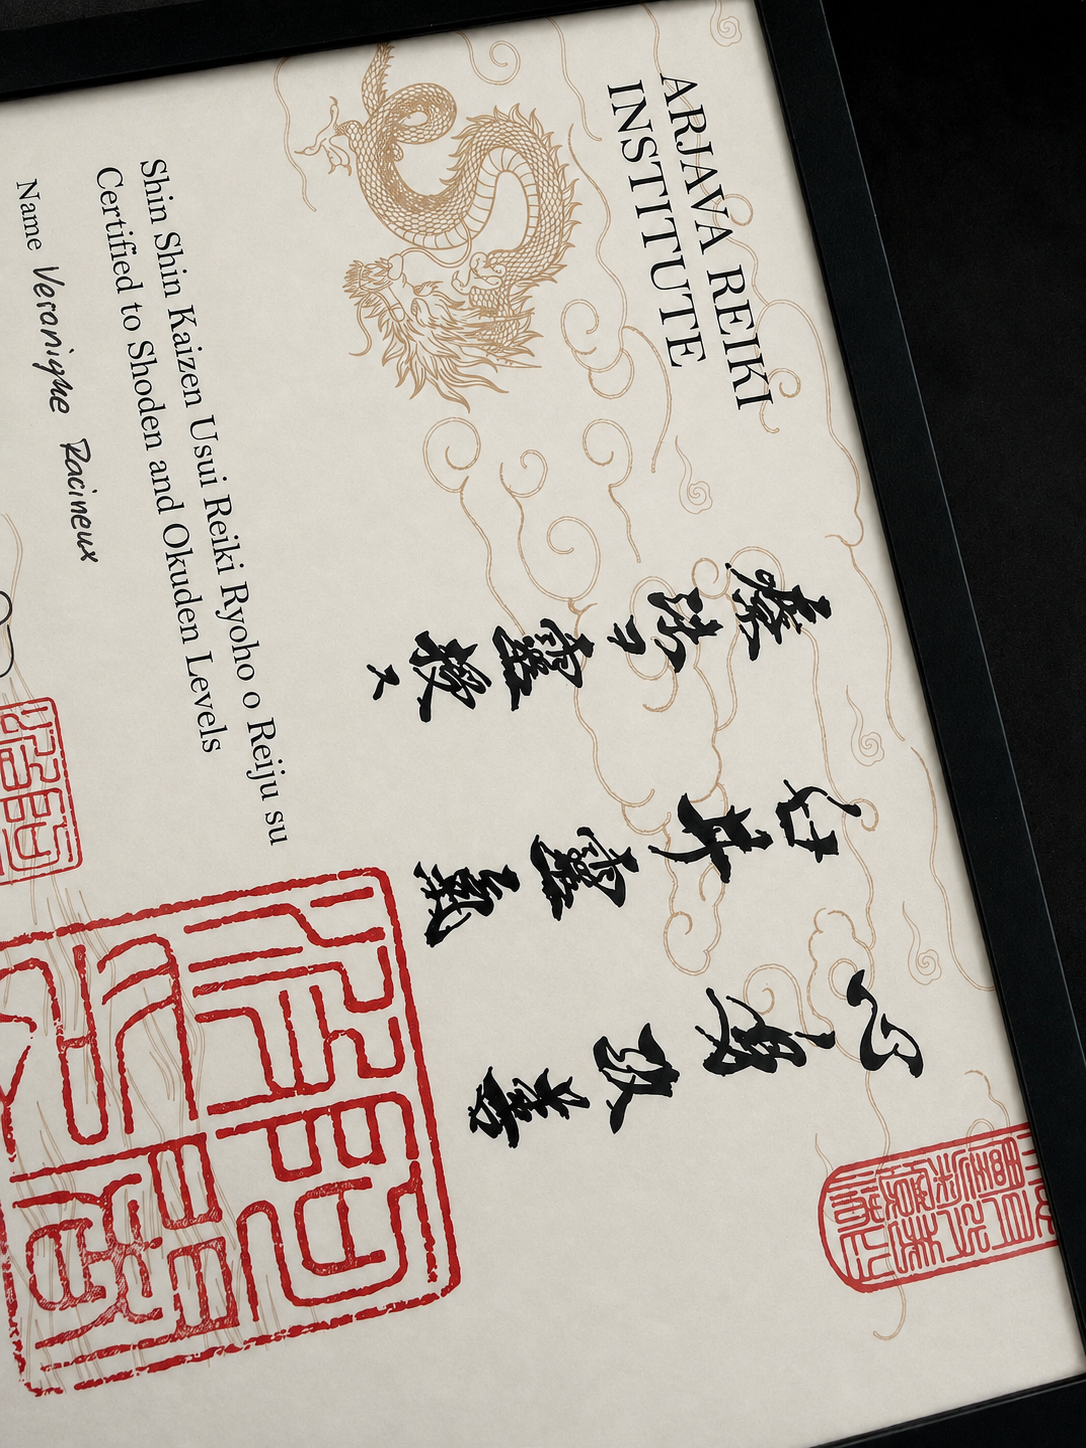 ARJAVA REIKI
INSTITUTE
心身改善
臼井靈氣
療法ヲ靈授ス
Shin Shin Kaizen Usui Reiki Ryoho o Reiju su
Certified to Shoden and Okuden Levels
Name Veranique Racineux